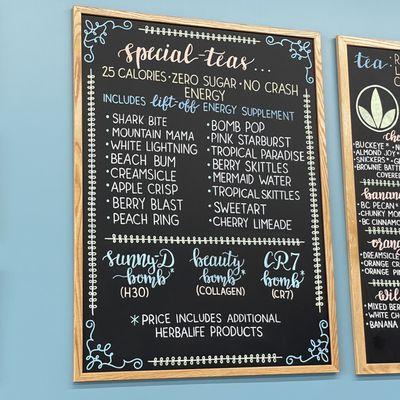 special teas...
25 CALORIES · ZERO SUGAR · NO CRASH
ENERGY
INCLUDES lift-off ENERGY SUPPLEMENT
· SHARK BITE
· MOUNTAIN MAMA
· WHITE LIGHTNING
· BEACH BUM
· CREAMSICLE
· APPLE CRISP
· BERRY BLAST
· PEACH RING
· BOMB POP
· PINK STARBURST
· TROPICAL PARADISE
· BERRY SKITTLES
· MERMAID WATER
· TROPICAL SKITTLES
· SWEETART
· CHERRY LIMEADE
sunny-D bomb*
(H30)
beauty bomb*
(COLLAGEN)
CR7 bomb*
(CR7)
* PRICE INCLUDES ADDITIONAL
HERBALIFE PRODUCTS
tea:
BUCKEYE*
· ALMOND JOY
· SNICKERS*
· BROWNIE BATT
COVERE
banana
· BC PECAN*
· CHUNKY MON
· BC CINNAMO
orang
· DREAMSICLE
· ORANGE CR
· ORANGE PIN
wil
· MIXED BERR
· WHITE CHO
· BANANA